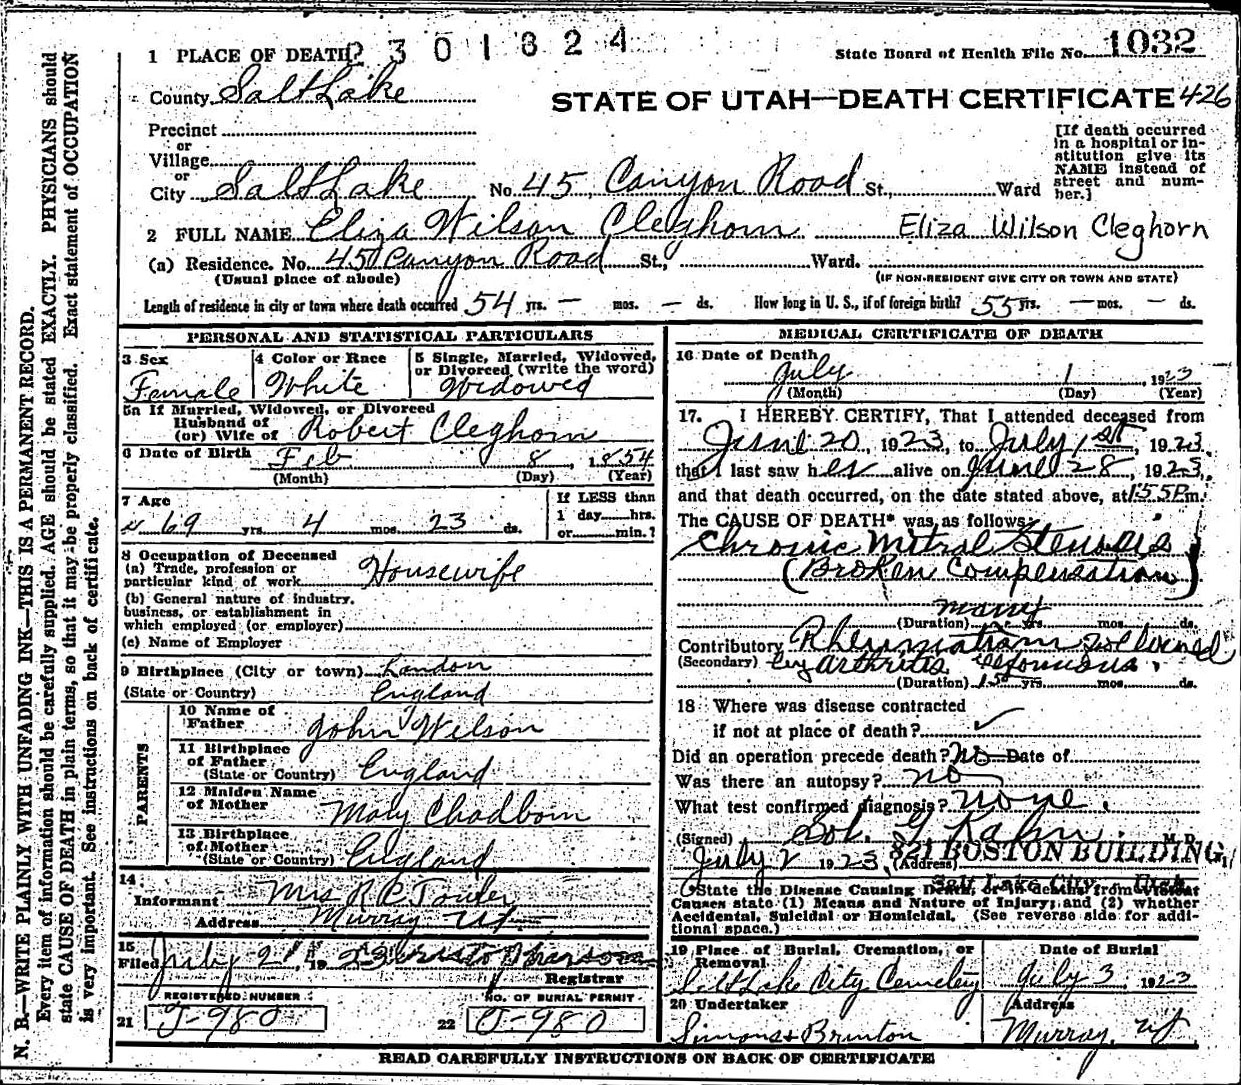 2301824
State Board of Health File No. 1032
1 PLACE OF DEATH
County Salt Lake
STATE OF UTAH—DEATH CERTIFICATE 426
Precinct
or
Village
or
City Salt Lake No. 45 Canyon Road St., Ward
[If death occurred in a hospital or institution give its NAME instead of street and number.]
2 FULL NAME Eliza Wilson Cleghorn Eliza Wilson Cleghorn
(a) Residence. No. 45 Canyon Road St., Ward.
(Usual place of abode) (IF NON-RESIDENT GIVE CITY OR TOWN AND STATE)
Length of residence in city or town where death occurred 54 yrs. — mos. — ds. How long in U. S., if of foreign birth? 55 yrs. — mos. — ds.
PERSONAL AND STATISTICAL PARTICULARS
3 Sex Female
4 Color or Race White
5 Single, Married, Widowed, or Divorced (write the word) Widowed
5a If Married, Widowed, or Divorced
Husband of
(or) Wife of Robert Cleghorn
6 Date of Birth Feb 8, 1854
(Month) (Day) (Year)
7 Age
69 yrs. 4 mos. 23 ds.
If LESS than
1 day hrs.
or min.?
8 Occupation of Deceased
(a) Trade, profession or
particular kind of work Housewife
(b) General nature of industry,
business, or establishment in
which employed (or employer)
(c) Name of Employer
9 Birthplace (City or town) London
(State or Country) England
PARENTS
10 Name of
Father John Wilson
11 Birthplace
of Father
(State or Country) England
12 Maiden Name
of Mother Mary Chadborn
13 Birthplace
of Mother
(State or Country) England
14
Informant Mrs R C Towler
Address Murray Ut
15
Filed July 2 1923
Registrar
REGISTERED NUMBER
21 J-980
NO. OF BURIAL PERMIT
22 J-980
MEDICAL CERTIFICATE OF DEATH
16 Date of Death
July 1, 1923
(Month) (Day) (Year)
17. I HEREBY CERTIFY, That I attended deceased from
June 20, 1923, to July 1st, 1923,
that I last saw her alive on June 28, 1923,
and that death occurred, on the date stated above, at 1:55 P m.
The CAUSE OF DEATH* was as follows:
Chronic Mitral Stenosis
(Broken Compensation)
many
(Duration) yrs. mos. ds.
Contributory Rheumatism followed
(Secondary) by arthritis deformans.
(Duration) 15 yrs. mos. ds.
18 Where was disease contracted
if not at place of death? ✓
Did an operation precede death? no Date of
Was there an autopsy? no
What test confirmed diagnosis? none.
(Signed) Sol. G. Kahn. M. D.
July 2 1923, (Address) 821 BOSTON BUILDING,
Salt Lake City, Utah
*State the Disease Causing Death, or in deaths from Violent
Causes state (1) Means and Nature of Injury; and (2) whether
Accidental, Suicidal or Homicidal. (See reverse side for addi-
tional space.)
19 Place of Burial, Cremation, or
Removal
Salt Lake City Cemetery
Date of Burial
July 3, 1923
20 Undertaker
Simons & Brunton
Address
Murray, Ut
READ CAREFULLY INSTRUCTIONS ON BACK OF CERTIFICATE
N. B.—WRITE PLAINLY WITH UNFADING INK—THIS IS A PERMANENT RECORD.
Every item of information should be carefully supplied. AGE should be stated EXACTLY. PHYSICIANS should
state CAUSE OF DEATH in plain terms, so that it may be properly classified. Exact statement of OCCUPATION
is very important. See instructions on back of certificate.